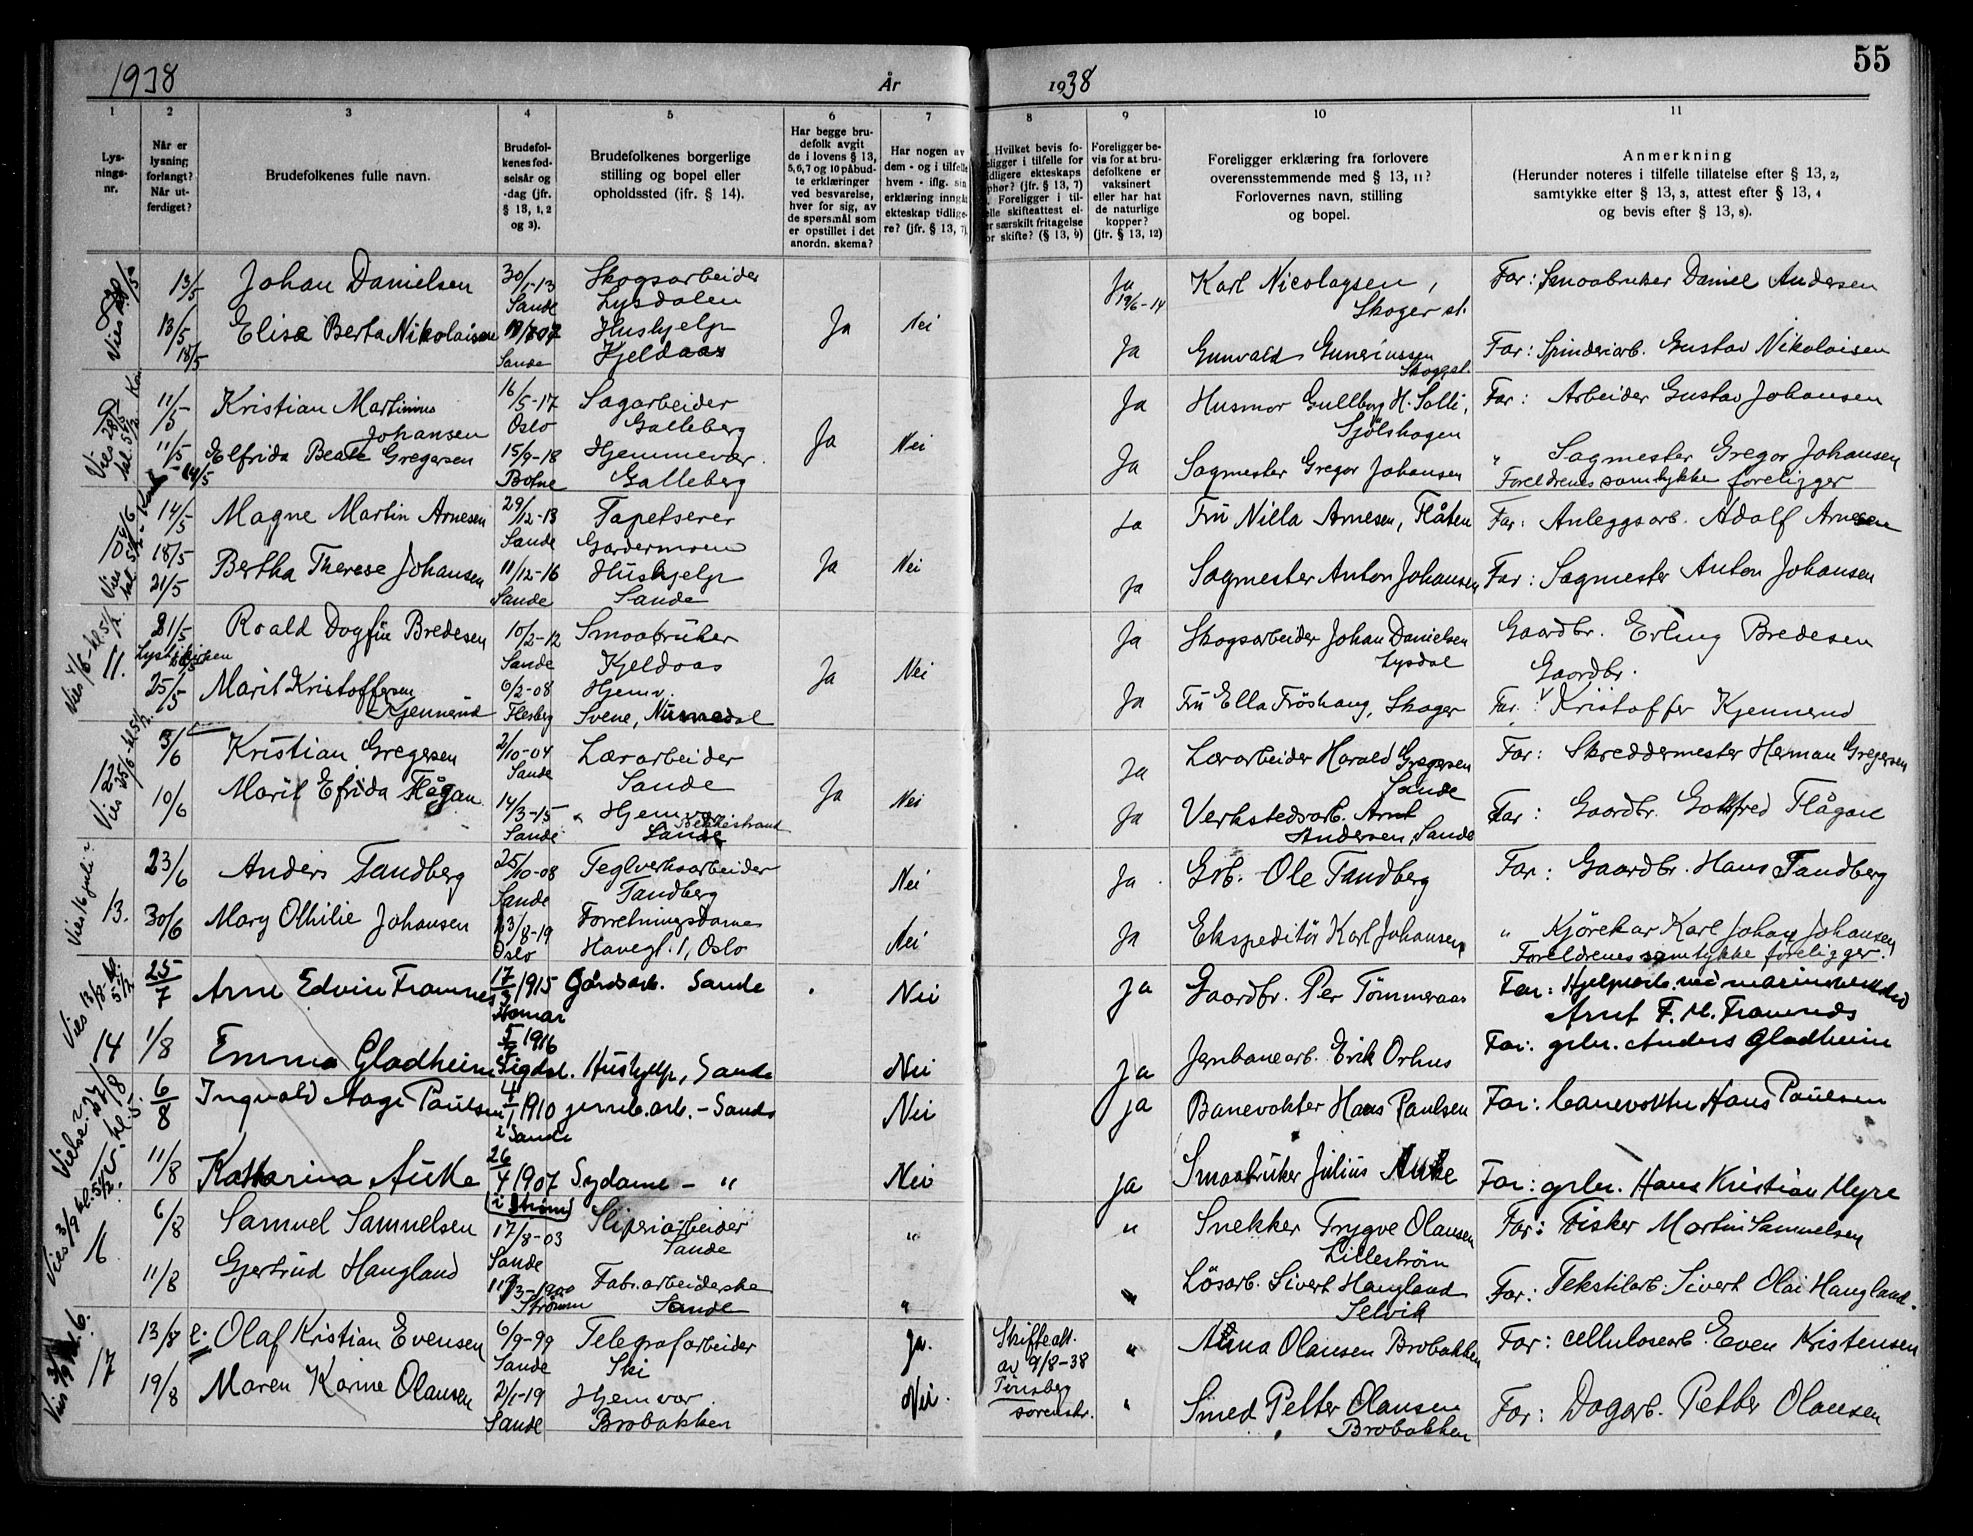 1938 År 1938 55
1 2 3 4 5 6 7 8 9 10 11
Lys-
nings-
nr.
Når er
lysning
forlangt?
Når ut-
ferdiget?
Brudefolkenes fulle navn.
Brudefol-
kenes fød-
selsår og
-dag (jfr.
§ 13, 1, 2
og 3).
Brudefolkenes borgerlige
stilling og bopel eller
opholdssted (ifr. § 14).
Har begge bru-
defolk avgit
de i lovens § 13,
5,6,7 og 10 påbud-
te erklæringer
ved besvarelse,
hver for sig, av
de spørsmål som
er opstillet i det
anordn. skema?
Har nogen av
dem - og i tilfelle
hvem - iflg. sin
erklæring inngåt
ekteskap tidlige-
re? (jfr. § 13, 7).
Hvilket bevis fo-
religger i tilfelle for
tidligere ekteskaps
ophør? (jfr. § 13, 7)
Foreligger i til-
felle skifteattest el-
ler særskilt fritagelse
for skifte? (§ 13, 9)
Foreligger be-
vis for at bru-
defolkene er
vaksinert
eller har hat
de naturlige
kopper?
(jfr. § 13, 12)
Foreligger erklæring fra forlovere
overensstemmende med § 13, 11?
Forlovernes navn, stilling
og bopel.
Anmerkning
(Herunder noteres i tilfelle tillatelse efter § 13, 2,
samtykke efter § 13, 3, attest efter § 13, 4
og bevis efter § 13, 8).
13/5 Johan Danielsen 30/1-13 Skogsarbeider Ja Karl Nicolaysen, Far: Smaabruker Daniel Andersen
Sande Lysdalen 19/6-14 Skoger st.
13/5 Elise Berta Nikolaisen Hushjelp Ja Nei
18/5 Sande Kjeldaas Ja Gunvald Skoger st. Far: Spinderiarb. Gustav Nikolaisen
11/5 Kristian Martinius 16/5-17 Sagarbeider Ja Husmor Gullborg H. Solli, Far: Arbeider Gustav Johansen
Johansen Oslo Galleberg Sjølshagen
11/5 Elfrida Beate Gregersen 15/9-18 Hjemmevær. Ja Nei Ja Sagmester Gregor Johansen " Sagmester Gregor Johansen
Botne Galleberg Foreldrenes samtykke foreligger
10 14/5 Magne Martin Arnesen 29/12-13 Tapetserer Ja Fru Nilla Arnesen, Flåten Far: Anleggsarb. Adolf Arnesen
18/5 Sande Gardermoen
21/5 Bertha Therese Johansen 11/12-16 Hushjelp Ja Nei Ja Sagmester Anton Johansen Far: Sagmester Anton Johansen
Sande Sande
11. 21/5 Roald Dagfin Bredesen 10/2-12 Smaabruker Ja Skogsarbeider Johan Danielsen Gaardbr. Erling Bredesen
Sande Kjeldaas Lysdal Gaardbr.
25/5 Marit Kristoffersen 6/2-08 Hjemv. Ja Nei Ja Fru Ella Fröshaug, Skoger Far: Kristoffer Kjennerud
Kjennerud Flesberg Svene, Numedal
12 3/6 Kristian Gregersen 2/10-04 Lærarbeider Ja Lærarbeider Harald Gregersen Far: Skreddermester Herman Gregersen
Sande Sande Sande
10/6 Marit Efrida Flågan 14/3-15 Hjemvær Bekkestrand Ja Nei Ja Verkstedsarb. Arnt Far: Gaardbr. Gottfred Flågan
Sande Sande Andersen, Sande
13. 23/6 Anders Tandberg 25/10-08 Teglverksarbeider Nei Ja Grb. Ole Tandberg Far: Gaardbr. Hans Tandberg
Vies 16 juli Sande Tandberg
30/6 Mary Othilie Johansen 23/8-19 Forretningsdame Nei Ja Ekspeditör Karl Johansen " Kjörekar Karl Johan Johansen
Oslo Havegt. 1, Oslo Foreldrenes samtykke foreligger.
14 25/7 Arne Edvin Framnes 1915 Gårdsarb. Sande Nei Ja Gaardbr. Per Tömmeraas Far: Hjelpearb. ved marineverksted
Vies 13/8 kl. 5 1/2 Hamar Arnt F. M. Framnes
1/8 Emma Gladheim 1916 Sigdal. Hushjelp, Sande Nei Ja Jernbanearb. Erik Orhus Far: grbr. Anders Gladheim
6/8 Ingvald Aage Paulsen 1910 jernb.arb. - Sande Nei ja Banevokter Hans Paulsen Far: banevokter Hans Paulsen
i Sande
11/8 Katharina Auke 26/4 1907 Sydame - " Nei ja Smaabruker Julius Auke Far: grbr. Hans Kristian Myre
i Strömm
16 6/8 Samuel Samuelsen 17/8-03 Sliperiarbeider " " Snekker Trygve Olausen Far: Fisker Martin Samuelsen
Sande Sande Lilleström
11/8 Gjertrud Haugland 3-1900 Fabr.arbeiderske " " Lösarb. Sivert Haugland Far: Tekstilarb. Sivert Olai Haugland.
Strömm Sande Selvik
17 13/8 Olaf Kristian Evensen 6/9-99 Telegrafarbeider Ja. Skifteatt. " Anna Olausen Brobakken Far: cellulosearb. Even Kristensen
Sande Ski av 9/8-38
19/8 Maren Karine Olausen 2/1-19 Hjemvær. Nei. Tönsberg " Smed Petter Olausen Far: Dagarb. Petter Olausen
Sande Brobakken sorenskr. Brobakken